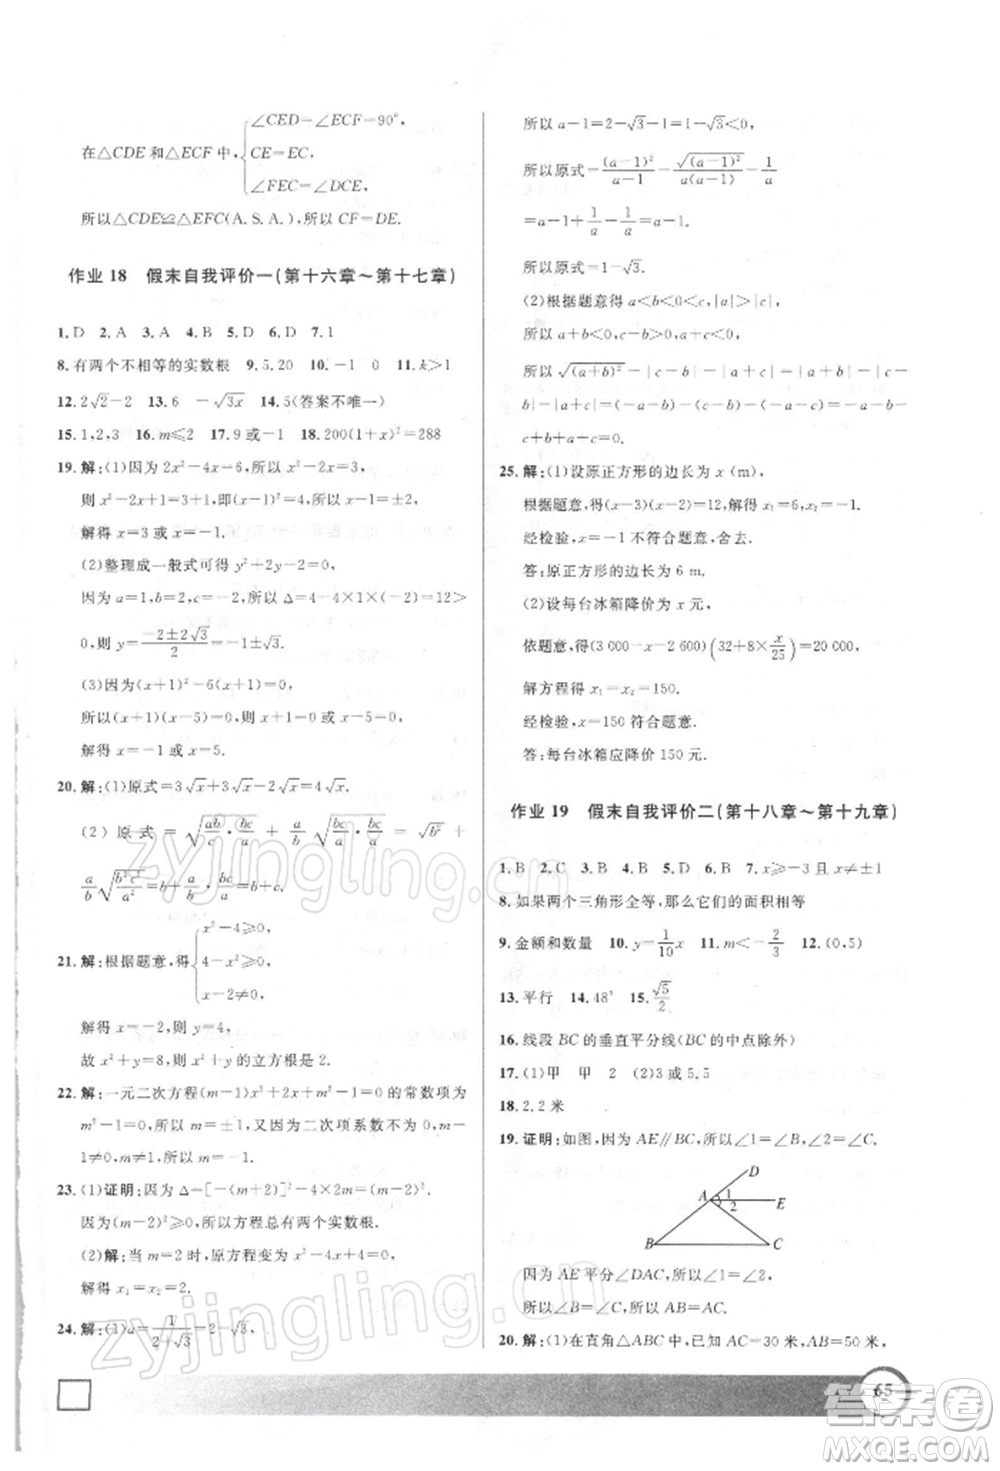 ∠CED=∠ECF=90°
在△CDE和△ECF中, CE=EC,
∠FEC=∠DCE,
所以△CDE≌△EFC(A.S.A.),所以CF=DE.
作业18 假末自我评价一(第十六章～第十七章)
1.D 2.A 3.A 4.B 5.D 6.D 7.1
8.有两个不相等的实数根 9.5,20 10.-1 0 11.k>1
12.2√2-2 13.6 -√3x 14.5(答案不唯一)
15.1,2,3 16.m≤2 17.9或-1 18.200(1+x)²=288
19.解:(1)因为2x²-4x=6,所以x²-2x=3,
则x²-2x+1=3+1,即(x-1)²=4,所以x-1=±2,
解得x=3或x=-1.
(2)整理成一般式可得y²+2y-2=0,
因为a=1,b=2,c=-2,所以Δ=4-4×1×(-2)=12>
0,则y=(-2±2√3)/2=-1±√3.
(3)因为(x+1)²-6(x+1)=0,
所以(x+1)(x-5)=0,则x+1=0或x-5=0,
解得x=-1或x=5.
20.解:(1)原式=3√x+3√x-2√x=4√x.
(2)原式=√(ab/c)·√(bc/a)+a/b√(bc/a)·√(b²c²/a²)=√b²+
21.解:根据题意,得 x²-4≥0, 4-x²≥0, x-2≠0,
解得x=-2,则y=4,
故x²+y=8,则x²+y的立方根是2.
22.解:一元二次方程(m-1)x²+2x+m²-1=0的常数项为
m²-1=0,所以m=±1,又因为二次项系数不为0,
m-1≠0,所以m=-1.
23.(1)证明:因为Δ=[-(m+2)]²-4×2m=(m-2)².
因为(m-2)²≥0,所以方程总有两个实数根.
(2)解:当m=2时,原方程变为x²-4x+4=0,
解得x₁=x₂=2.
24.解:(1)a=1/(2+√3)=2-√3,
所以a-1=2-√3-1=1-√3<0,
所以原式=(a-1)²/(a-1)-√(a-1)²/(a(a-1))-1/a
=a-1+1/a-1/a
=a-1=1-√3.
(2)根据题意得a<b<0<c,|c|<|b|<|a|,
所以a+b<0,c-a>0,b+c<0,
所以√(a+b)²-|c-a|+|b+c|-|-b|
=|a+b|-|c-a|+|b+c|-|b|=-a-b-c+a-b-
c+b=-b-2c.
25.解:(1)设原正方形的边长为x(m),
根据题意,得(x-3)(x-2)=12,解得x₁=6,x₂=-1.
经检验,x=-1不符合题意,舍去.
答:原正方形的边长为6 m.
(2)设每台冰箱降价为x元,
依题意,得(3 000-x-2 600)(32+8×x/25)=20 000,
解方程得x₁=x₂=150.
经检验,x=150符合题意.
答:每台冰箱应降价150元.
作业19 假末自我评价二(第十八章～第十九章)
1.B 2.C 3.B 4.A 5.D 6.B 7.x≥-3且x≠±1
8.如果两个三角形全等,那么它们的面积相等
9.金额和数量 10.y=1/10x 11.m<-2/3 12.(0,5)
13.平行 14.48° 15.√5/2
16.线段BC的垂直平分线(BC的中点除外)
17.(1)甲 甲 2 (2)3或5.5
18.2.2米
19.证明:如图,因为AE∥BC,所以∠1=∠B,∠2=∠C.
D
A 1
2 E
B C
因为AE平分∠DAC,所以∠1=∠2,
所以∠B=∠C,所以AB=AC.
20.解:(1)在直角△ABC中,已知AC=30米,AB=50米,
65
zyjingling.cn
zyjingling.cn
答案卷
MXQE.COM